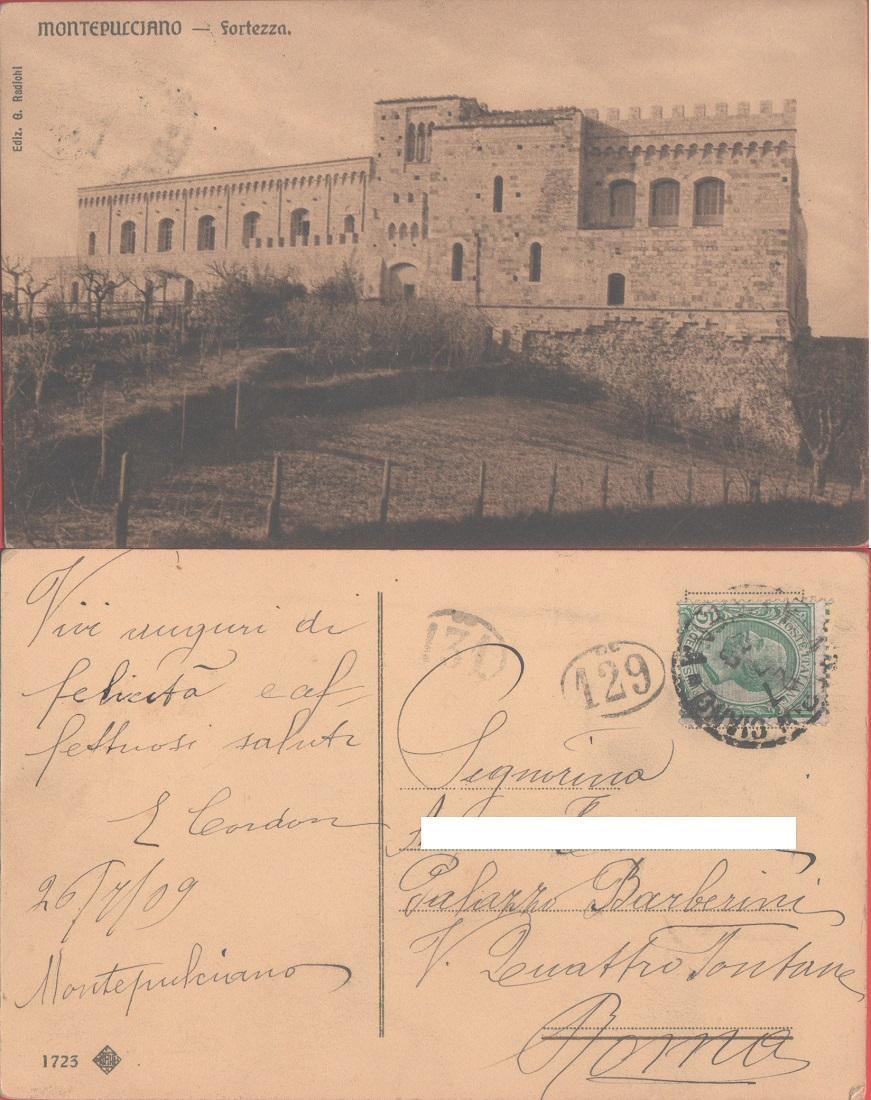 MONTEPULCIANO — Fortezza.
Ediz. G. Radichi
Vivi auguri di
felicità e af-
fettuosi saluti
E Cordon
26/7/09
Montepulciano
1723
129
POSTE ITALIANE
Signorina
Palazzo Barberini
V. Quattro Fontane
Roma